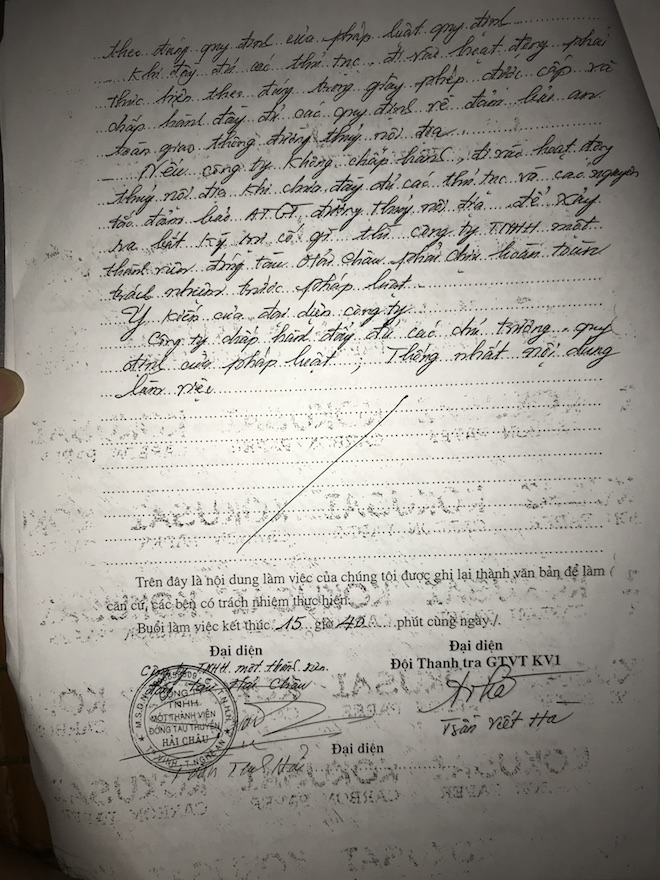 theo đúng quy định của pháp luật quy định
- Khi đầy đủ các thủ tục, đi vào hoạt động phải
thực hiện theo đúng trong giấy phép được cấp và
chấp hành đầy đủ các quy định về đảm bảo an
toàn giao thông đường thuỷ nội địa.
- Nếu công ty không chấp hành, đi vào hoạt động
thuỷ nội địa khi chưa đầy đủ các thủ tục và các nguyên
tắc đảm bảo ATGT đường thuỷ nội địa để xảy
ra bất kỳ sự cố gì thì công ty TNHH một
thành viên đóng tàu Hải Châu phải chịu hoàn toàn
trách nhiệm trước pháp luật.
Ý kiến của đại diện công ty
Công ty chấp hành đầy đủ các chủ trương, quy
định của pháp luật; Thống nhất nội dung
làm việc
KOKUSAI KOKUSAI
CARBON PAPER
Trên đây là nội dung làm việc của chúng tôi được ghi lại thành văn bản để làm
căn cứ, các bên có trách nhiệm thực hiện.
Buổi làm việc kết thúc 15 giờ 40 phút cùng ngày./.
Đại diện
Công ty TNHH một thành viên
đóng tàu Hải Châu
CÔNG TY
TNHH
MỘT THÀNH VIÊN
ĐÓNG TÀU THUYỀN
HẢI CHÂU
TP. VINH - T. NGHỆ AN
Đại diện
Đội Thanh tra GTVT KV1
Trần Viết Hà
Đại diện